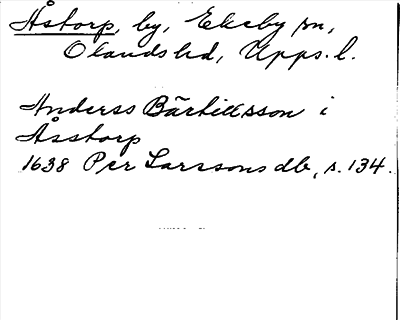 Åstorp, by, Ekeby sn,
Olands hd, Upps. l.
Anderss Bärtillsson i
Åsstorp
1638 Per Larssons db, s. 134.